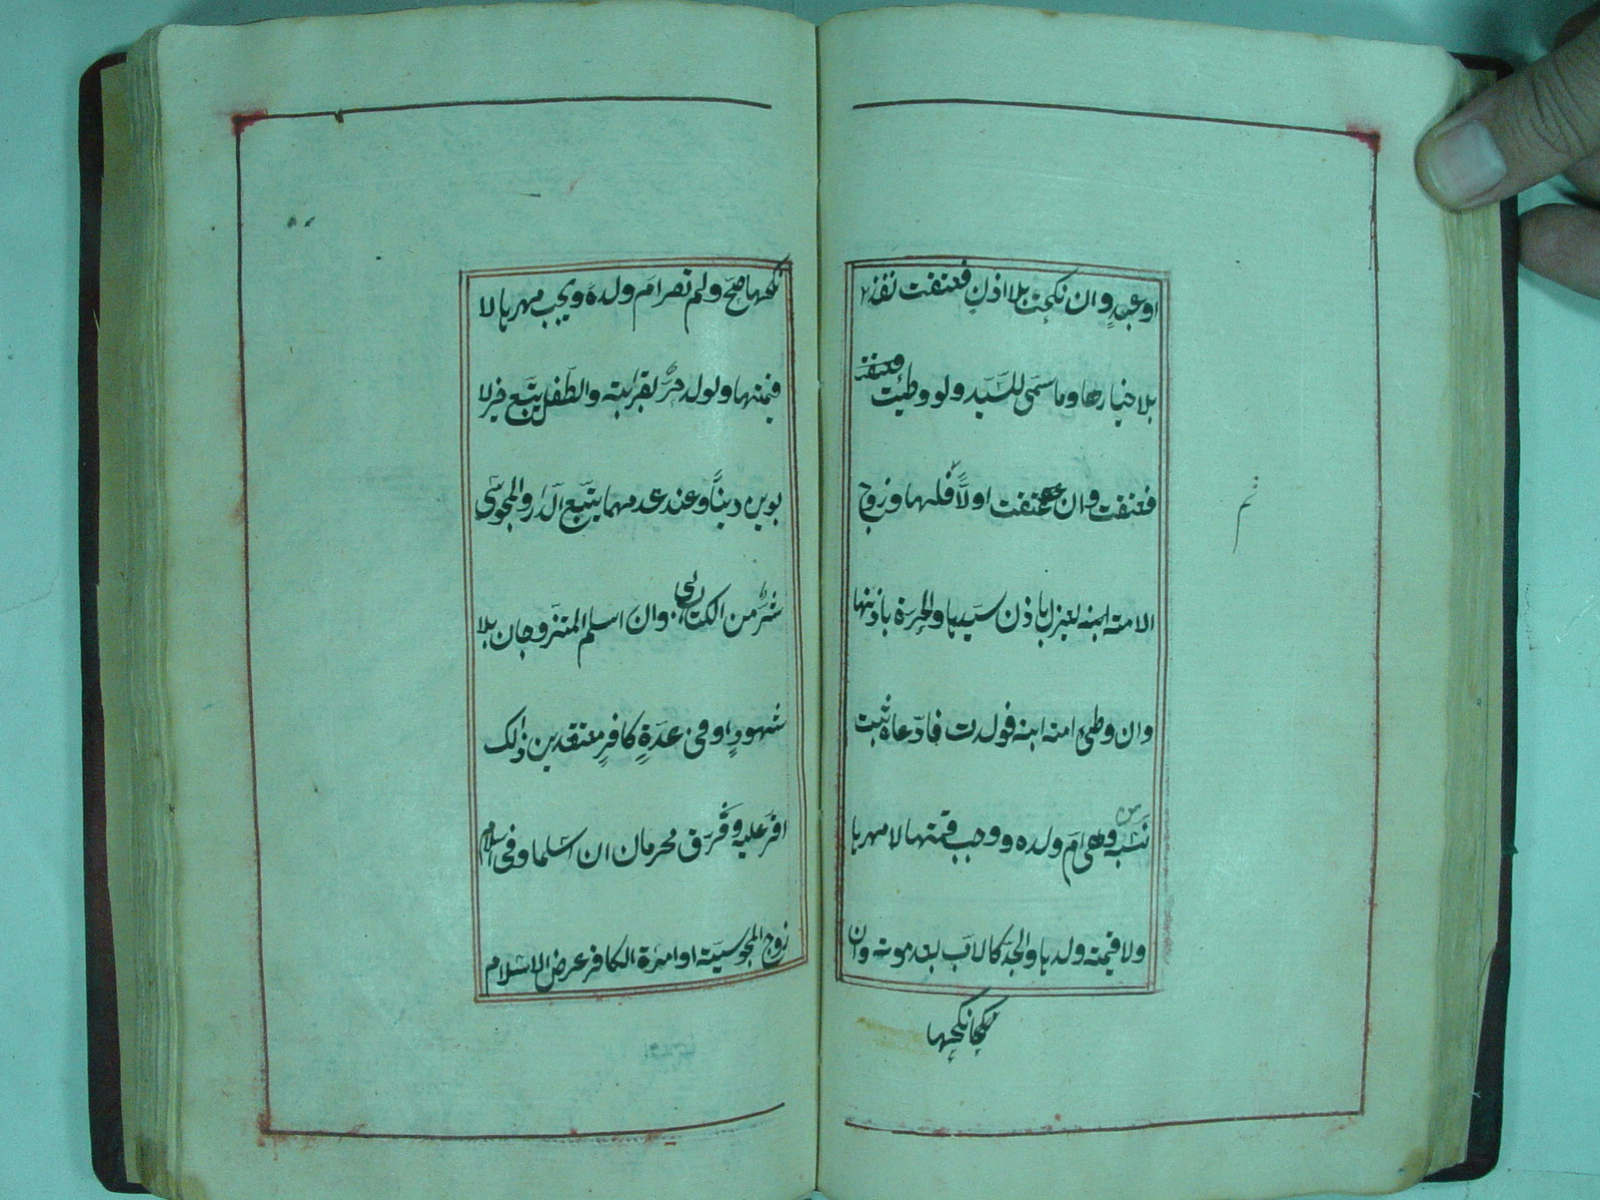 او عبدٍ وان نكحت بلا اذنٍ فعتقت نفذ
بلا خيارها وما سمّى للسّيّد ولو وطيت فعتقت
فعتقت وان عتقت اولًا فلها وزوج
الامته ابنه لعبزل باذن سيّدها والحرة باذنها
وان وطئ امته ابنه فولدت فادّعاه ثبت
نسبه وهى امّ ولده ووجب قيمتها لا مهرها
ولا قيمته ولدها والجدّ كالاب بعد موته وان
نكحها
نكحها صحّ ولم تصر امّ ولده ويجب مهرها لا
قيمتها ولولد حرٌّ لقرابته والطّفل يتّبع خير لا
بوين دينًا وعند عدمهما يتبّع الدّار والمجوسّى
شرٌّ من الكتابى وان اسلم المتزوجان بلا
شهودٍ او فى عدّةِ كافرٍ معتقدين ذلك
اقرّ عليه وفُرّق محرمان ان اسلما وفى اسلام
زوج المجوسيّته او امرٔة الكافر عرض الاسلام